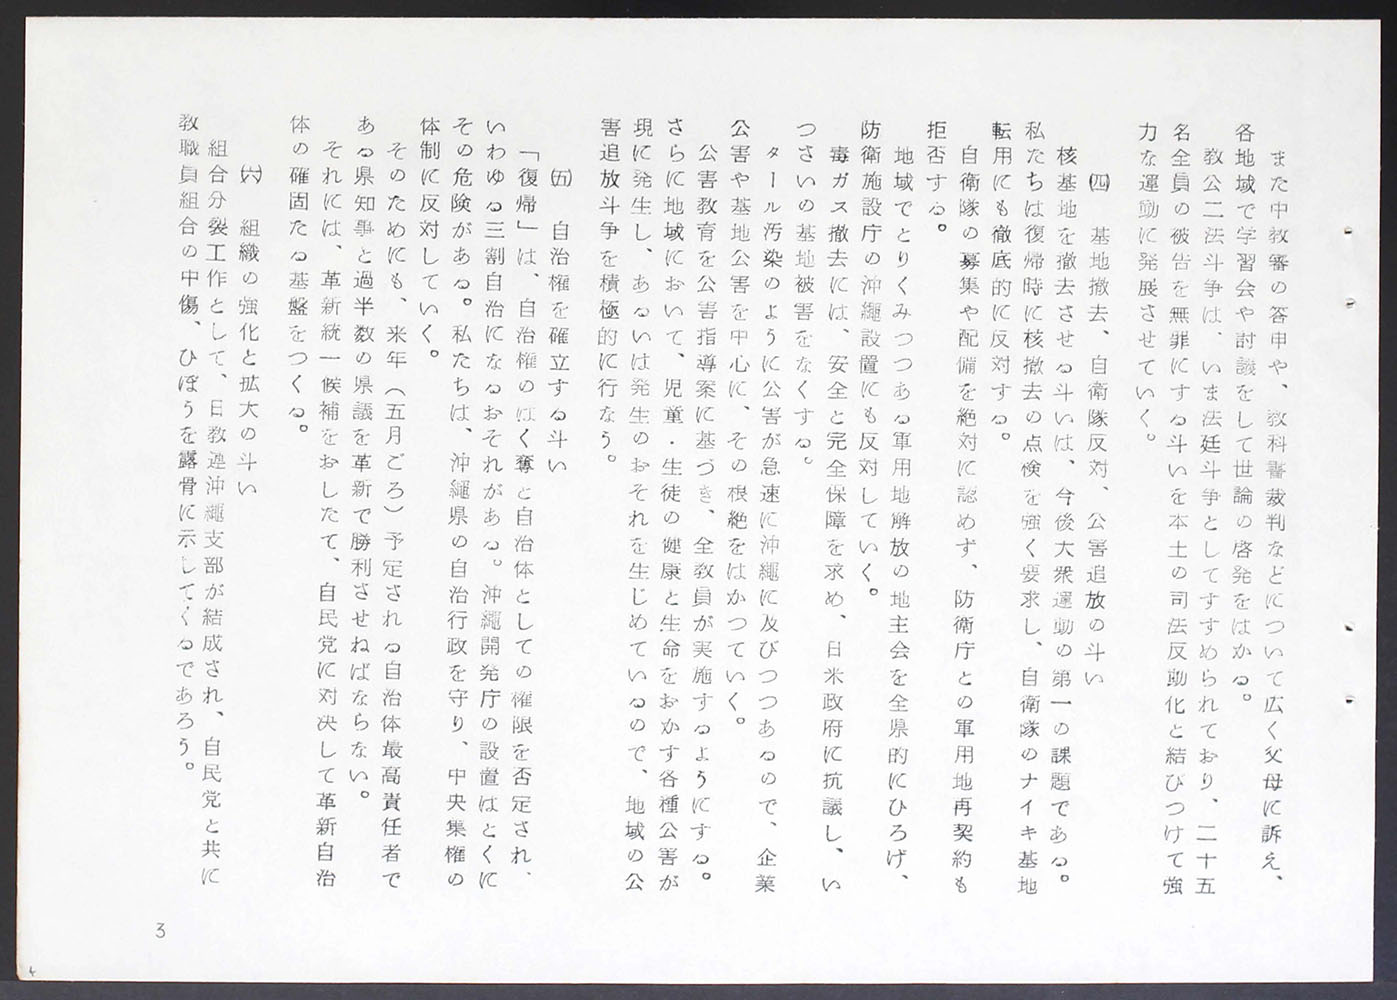 また中教審の答申や、教科書裁判などについて広く父母に訴え、
各地域で学習会や討議をして世論の啓発をはかる。
教公二法斗争は、いま法廷斗争としてすすめられており、二十五
名全員の被告を無罪にする斗いを本土の司法反動化と結びつけて強
力な運動に発展させていく。
㈣　基地撤去、自衛隊反対、公害追放の斗い
核基地を撤去させる斗いは、今後大衆運動の第一の課題である。
私たちは復帰時に核撤去の点検を強く要求し、自衛隊のナイキ基地
転用にも徹底的に反対する。
自衛隊の募集や配備を絶対に認めず、防衛庁との軍用地再契約も
拒否する。
地域でとりくみつつある軍用地解放の地主会を全県的にひろげ、
防衛施設庁の沖縄設置にも反対していく。
毒ガス撤去には、安全と完全保障を求め、日米政府に抗議し、い
つさいの基地被害をなくする。
タール汚染のように公害が急速に沖縄に及びつつあるので、企業
公害や基地公害を中心に、その根絶をはかつていく。
公害教育を公害指導案に基づき、全教員が実施するようにする。
さらに地域において、児童・生徒の健康と生命をおかす各種公害が
現に発生し、あるいは発生のおそれを生じめているので、地域の公
害追放斗争を積極的に行なう。
㈤　自治権を確立する斗い
「復帰」は、自治権のはく奪と自治体としての権限を否定され、
いわゆる三割自治になるおそれがある。沖縄開発庁の設置はとくに
その危険がある。私たちは、沖縄県の自治行政を守り、中央集権の
体制に反対していく。
そのためにも、来年（五月ごろ）予定される自治体最高責任者で
ある県知事と過半数の県議を革新で勝利させねばならない。
それには、革新統一候補をおしたて、自民党に対决して革新自治
体の確固たる基盤をつくる。
㈥　組織の強化と拡大の斗い
組合分裂工作として、日教連沖縄支部が結成され、自民党と共に
教職員組合の中傷、ひぼうを露骨に示してくるであろう。
3